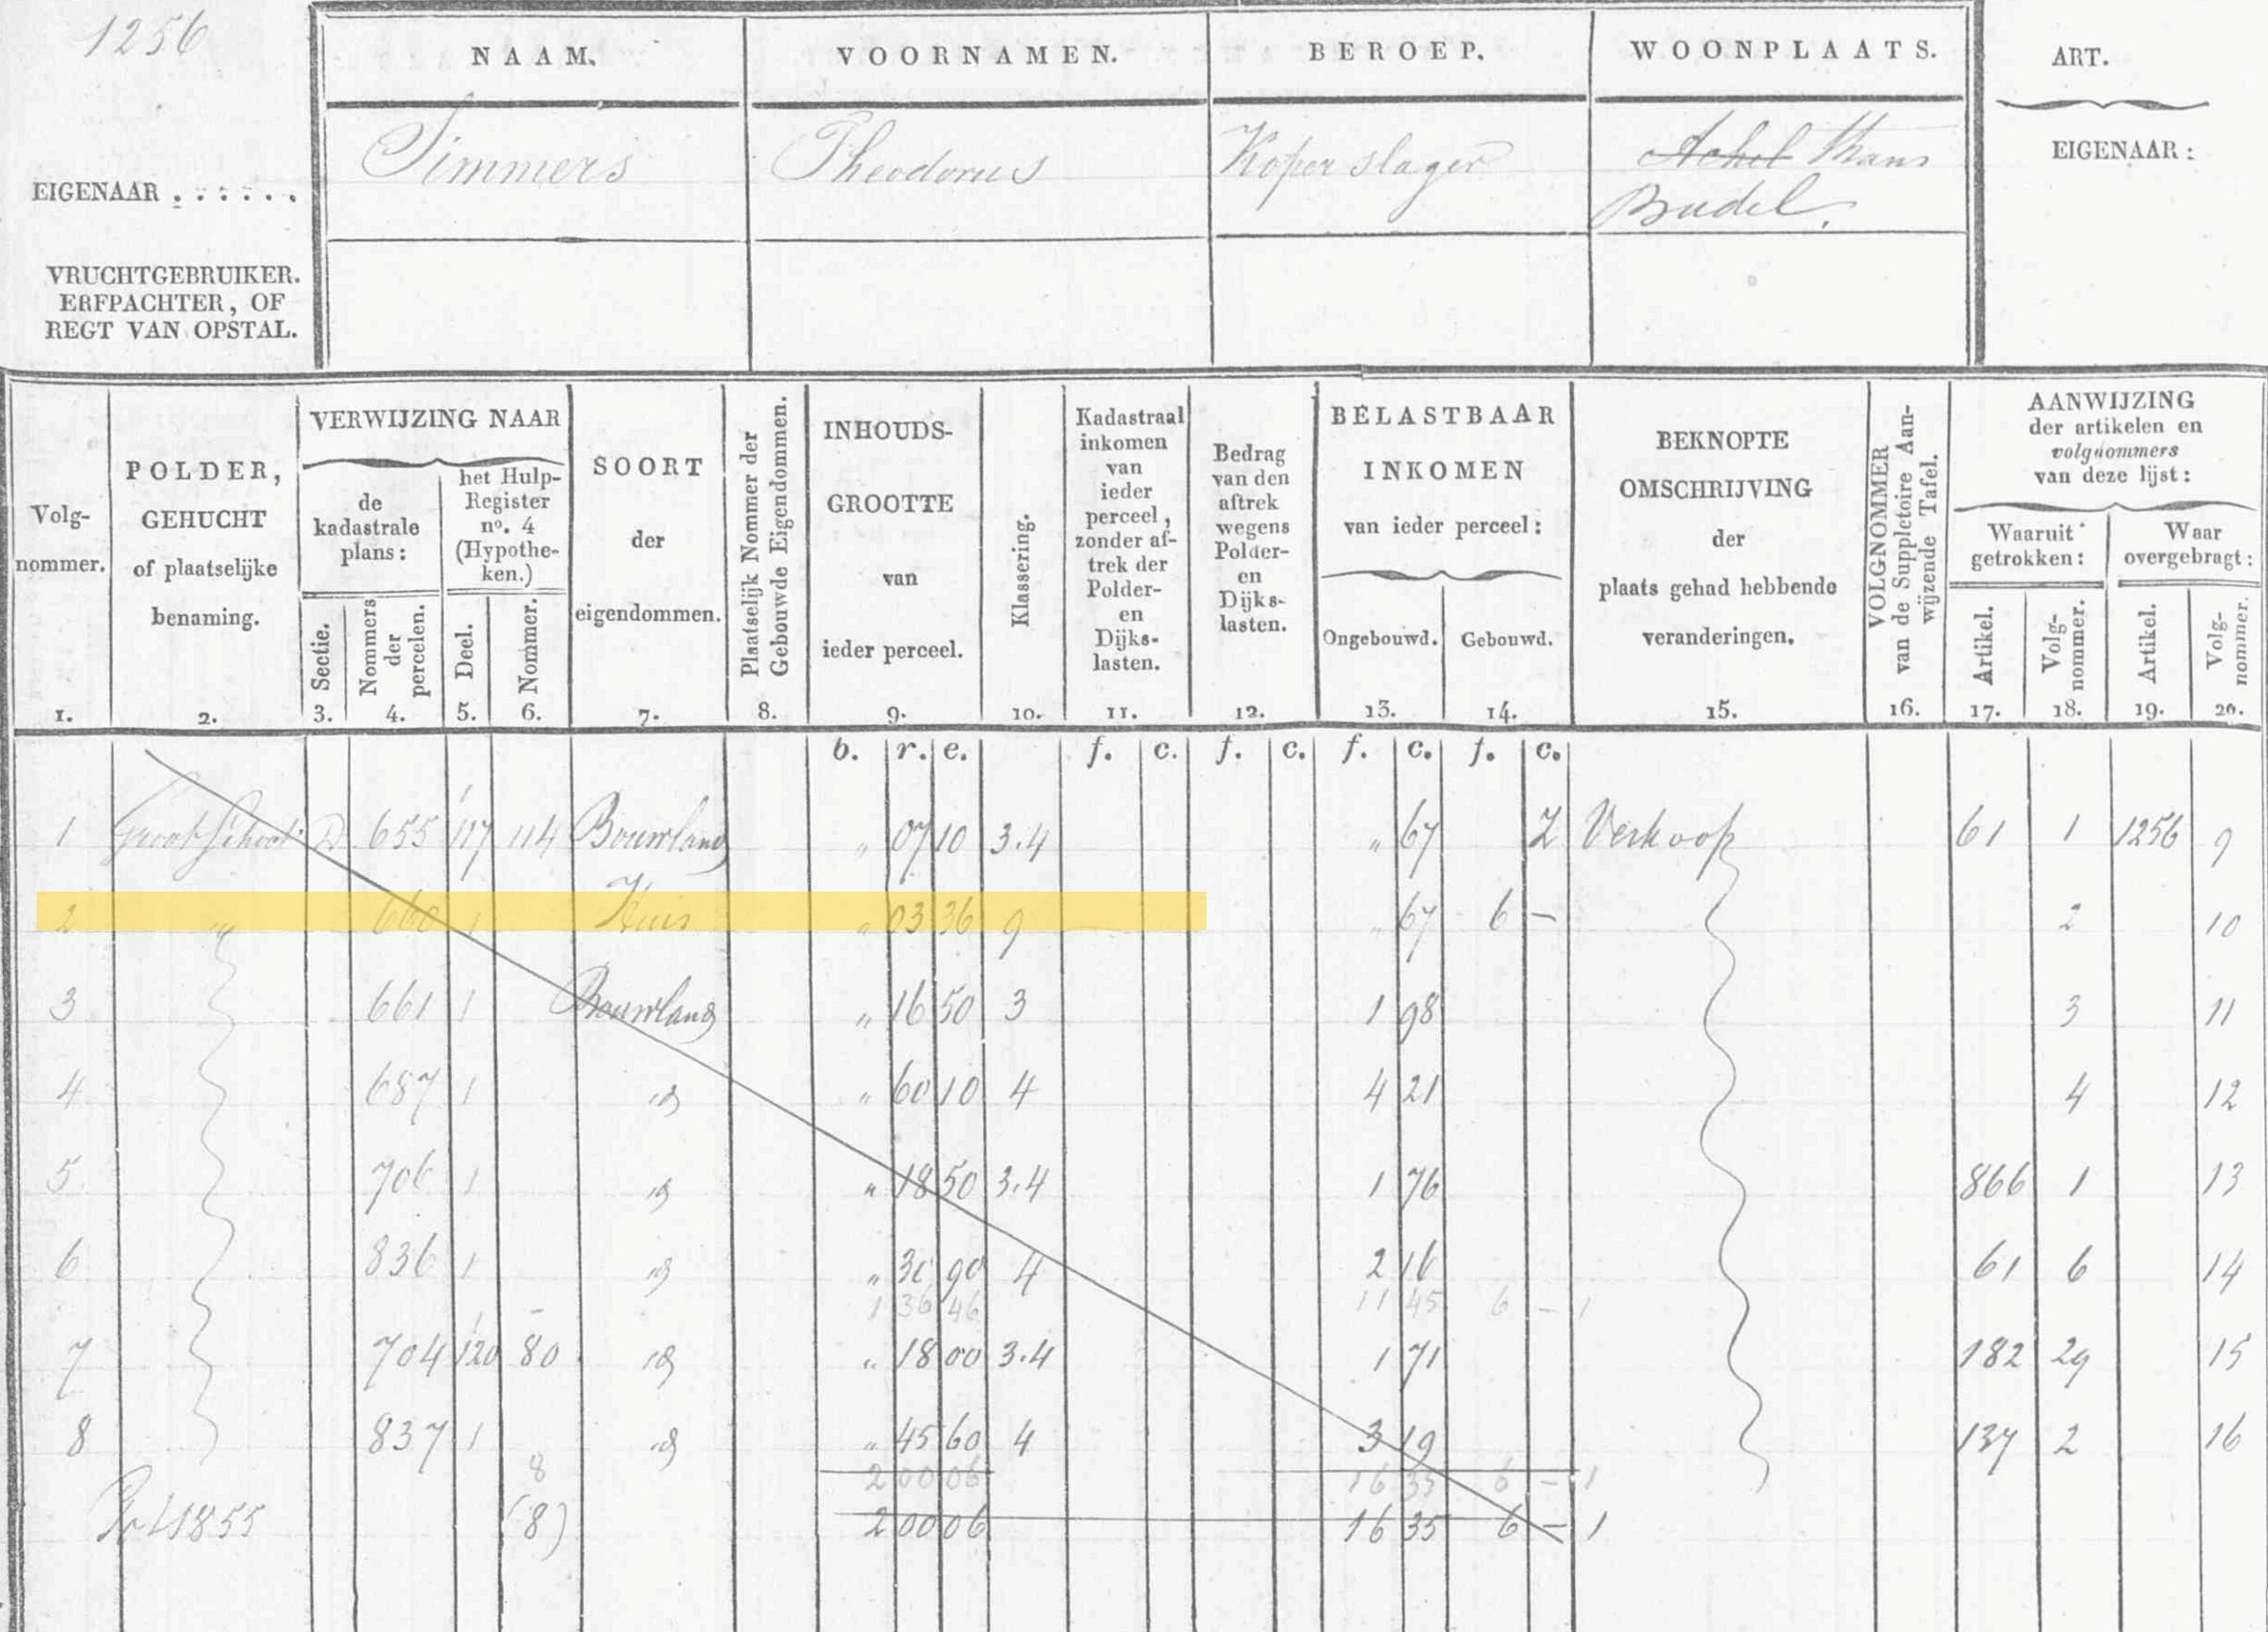 1256
NAAM. VOORNAMEN. BEROEP. WOONPLAATS. ART.
EIGENAAR . . . . . . Simmers Theodorus Koperslager Achel thans EIGENAAR :
Budel.
VRUCHTGEBRUIKER.
ERFPACHTER, OF
REGT VAN OPSTAL.
Volg-
nommer.
1.
POLDER,
GEHUCHT
of plaatselijke
benaming.
2.
VERWIJZING NAAR
de
kadastrale
plans :
Sectie.
3.
Nommers
der
percelen.
4.
het Hulp-
Register
no. 4
(Hypothe-
ken.)
Deel.
5.
Nommer.
6.
SOORT
der
eigendommen.
7.
Plaatselijk Nommer der
Gebouwde Eigendommen.
8.
INHOUDS-
GROOTTE
van
ieder perceel.
9.
Klassering.
10.
Kadastraal
inkomen
van
ieder
perceel,
zonder af-
trek der
Polder-
en
Dijks-
lasten.
11.
Bedrag
van den
aftrek
wegens
Polder-
en
Dijks-
lasten.
12.
BELASTBAAR
INKOMEN
van ieder perceel :
Ongebouwd.
13.
Gebouwd.
14.
BEKNOPTE
OMSCHRIJVING
der
plaats gehad hebbende
veranderingen.
15.
VOLGNOMMER
van de Suppletoire Aan-
wijzende Tafel.
16.
AANWIJZING
der artikelen en
volgnommers
van deze lijst :
Waaruit
getrokken :
Artikel.
17.
Volg-
nommer.
18.
Waar
overgebragt :
Artikel.
19.
Volg-
nommer.
20.
b. r. e. f. c. f. c. f. c. f. c.
1 Groot Schoot D 655 117 114 Bouwland " 07 10 3.4 " 67 Z Verkoop 61 1 1256 9
2 " 660 1 Huis " 03 36 9 " 67 6 — 2 10
3 661 1 Bouwland " 16 50 3 1 98 3 11
4 687 1 id " 60 10 4 4 21 4 12
5 706 1 id " 18 50 3.4 1 76 866 1 13
6 836 1 id " 30 90 4 2 16 61 6 14
1 36 46 11 45 6 — 1
7 704 120 80 id " 18 00 3.4 1 71 182 29 15
8 837 1 id " 45 60 4 3 19 137 2 16
8 2 00 06 16 35 6 — 1
1855 (8) 2 00 06 16 35 6 — 1